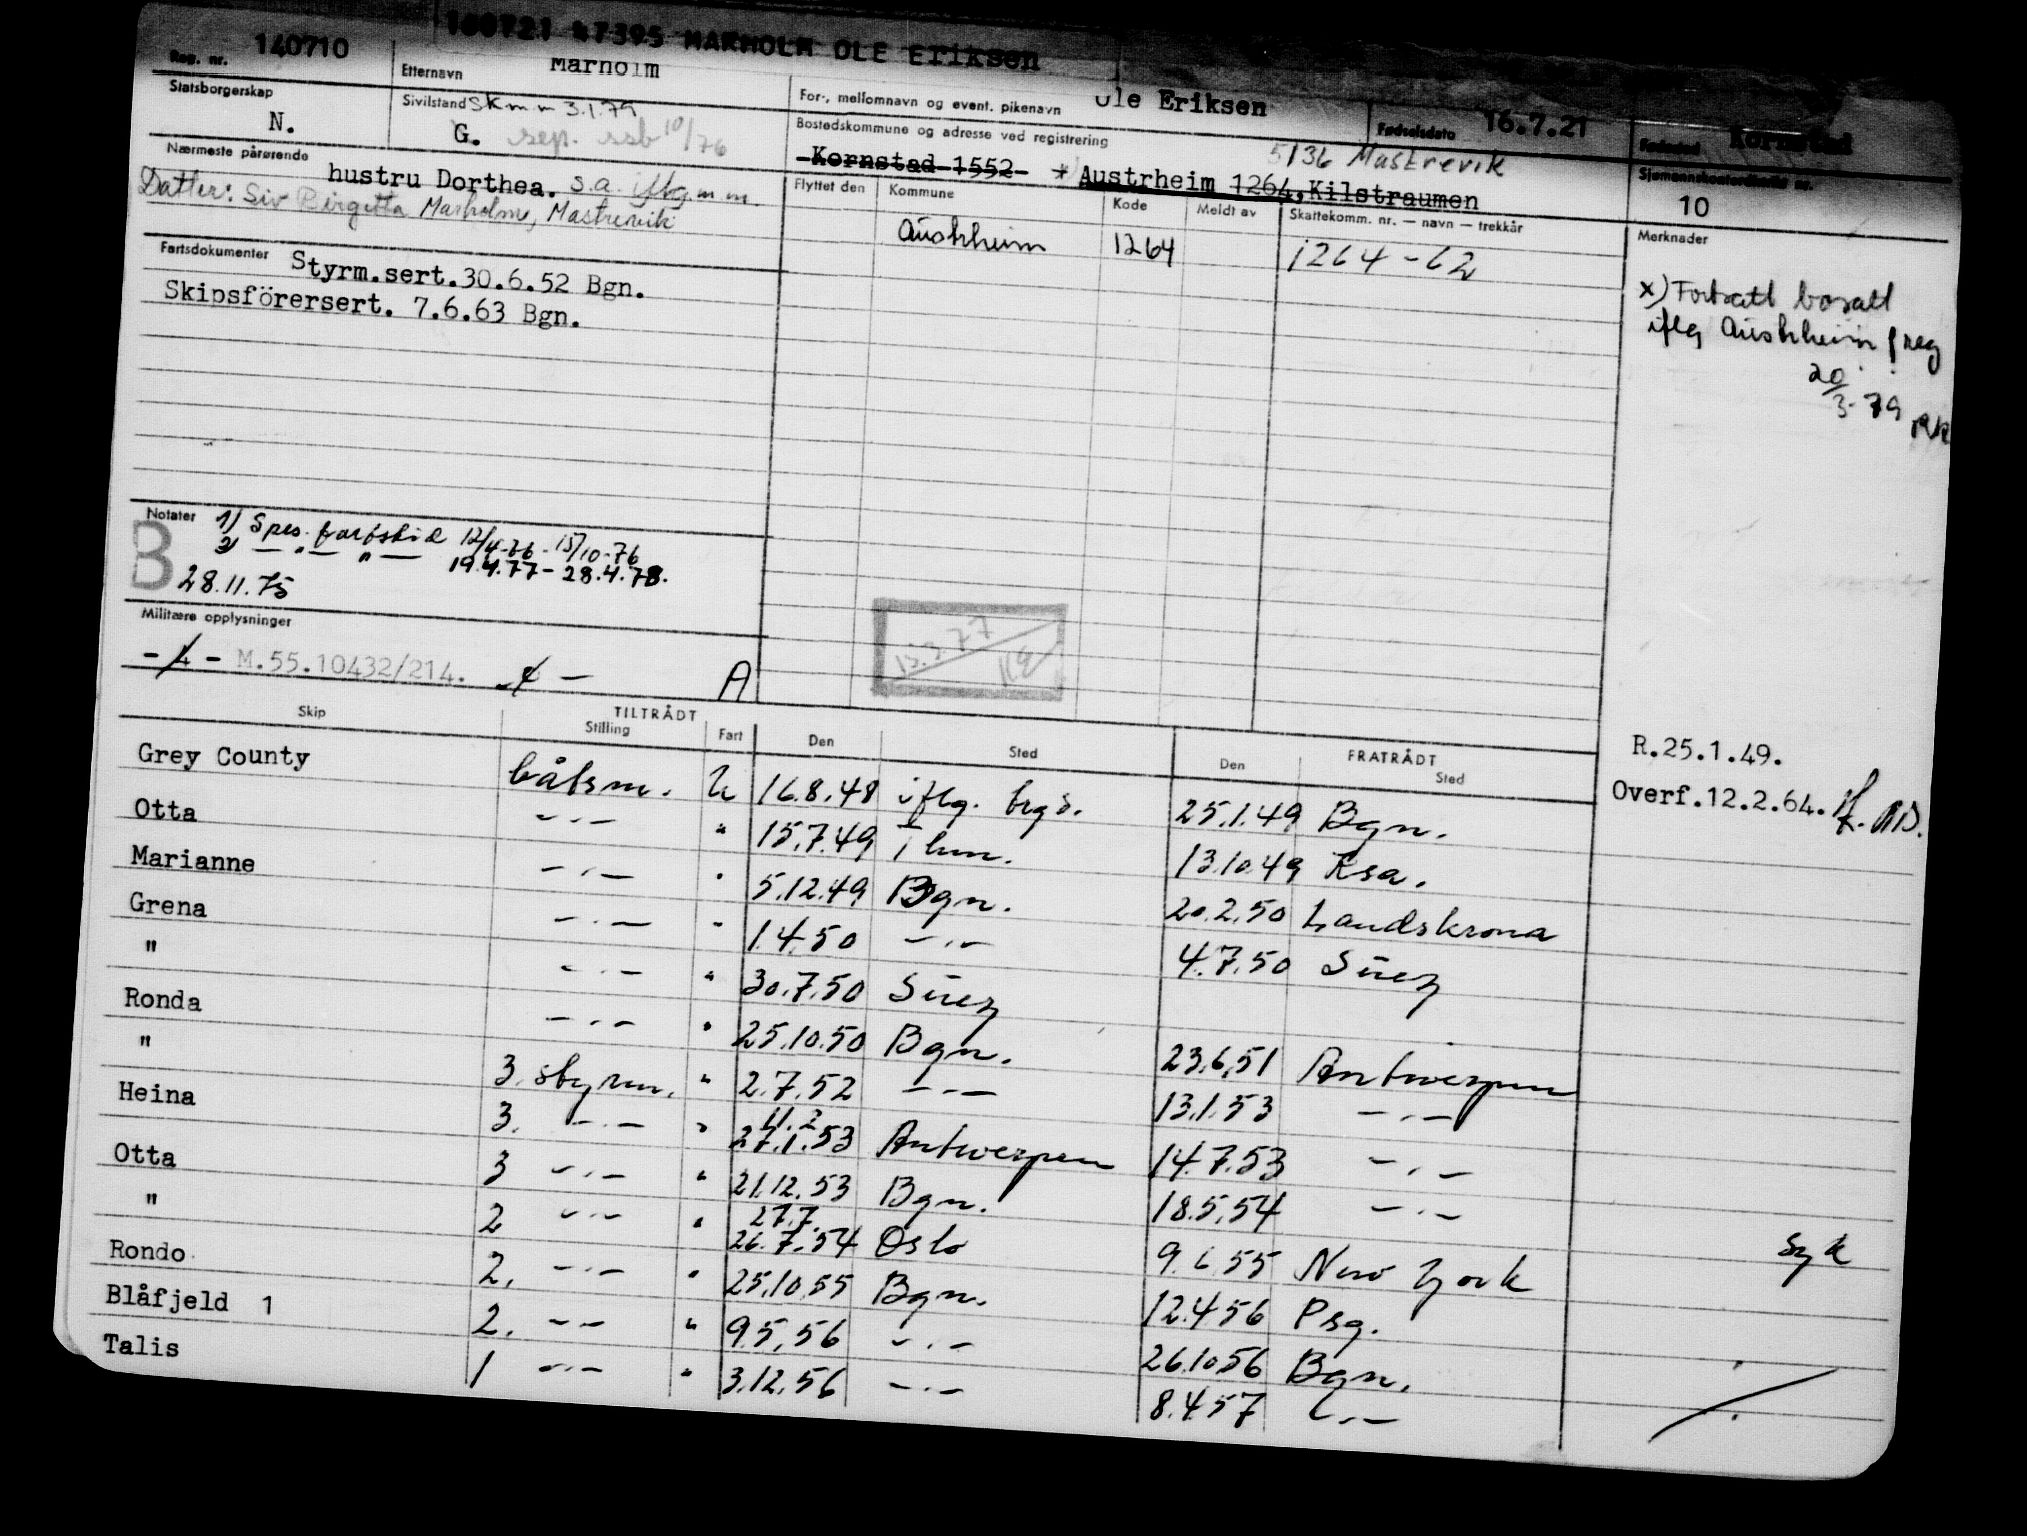 160721 47395 MARHOLM OLE Eriksen
Reg. nr. 140710 Etternavn Marholm For-, mellomnavn og event. pikenavn Ole Eriksen Fødselsdato 16.7.21 Fødested Kornstad
Statsborgerskap N. Sivilstand skm m 3.1.79 G. sep. ssb 10/76
Bostedskommune og adresse ved registrering 5136 Mastrevik
Kornstad 1552 x Austrheim 1264, Kilstraumen
Sjømannskontordistrikt nr. 10
Nærmeste pårørende hustru Dorthea. s.a. iflg. m m.
Datter: Siv Birgitta Marholm, Mastrevik
Flyttet den Kommune Kode Meldt av Skattekomm. nr. — navn — trekkår Merknader
Austrheim 1264 1264-62
Fartsdokumenter Styrm.sert.30.6.52 Bgn.
Skipsförersert. 7.6.63 Bgn.
x) Fortsatt bosatt
iflg Austrheim f reg
20/3-79
Notater 1) Spes. fartstid 12/4-76 - 15/10-76
2) — " — " — 19.4.77 - 28.4.78.
B 28.11.75
Militære opplysninger
M.55.10432/214. A
15.3.77
Skip TILTRÅDT Stilling Fart Den Sted FRATRÅDT Den Sted
R.25.1.49.
Overf.12.2.64.
Grey County båtsm. U 16.8.48 iflg. brgs. 25.1.49 Bgn.
Otta — " — " 15.7.49 Thm. 13.10.49 Ksa.
Marianne — " — " 5.12.49 Bgn. 20.2.50 Landskrona
Grena — " — " 1.4.50 — " — 4.7.50 Suez
" — " — " 30.7.50 Suez
Ronda — " — " 25.10.50 Bgn. 23.6.51 Antwerpen
" 3. styrm. " 2.7.52 — " — 13.1.53 — " —
Heina 3. — " — " 11.2 27.1.53 Antwerpen 14.7.53 — " —
Otta 3 — " — " 21.12.53 Bgn. 18.5.54 — " —
" 2 — " — " 27.7. 26.7.54 Oslo 9.6.55 New York syk
Rondo 2. — " — " 25.10.55 Bgn. 12.4.56 Psg.
Blåfjeld 1 2. — " — " 9.5.56 — " — 26.10.56 Bgn.
Talis 1 — " — " 3.12.56 — " — 8.4.57 — " —